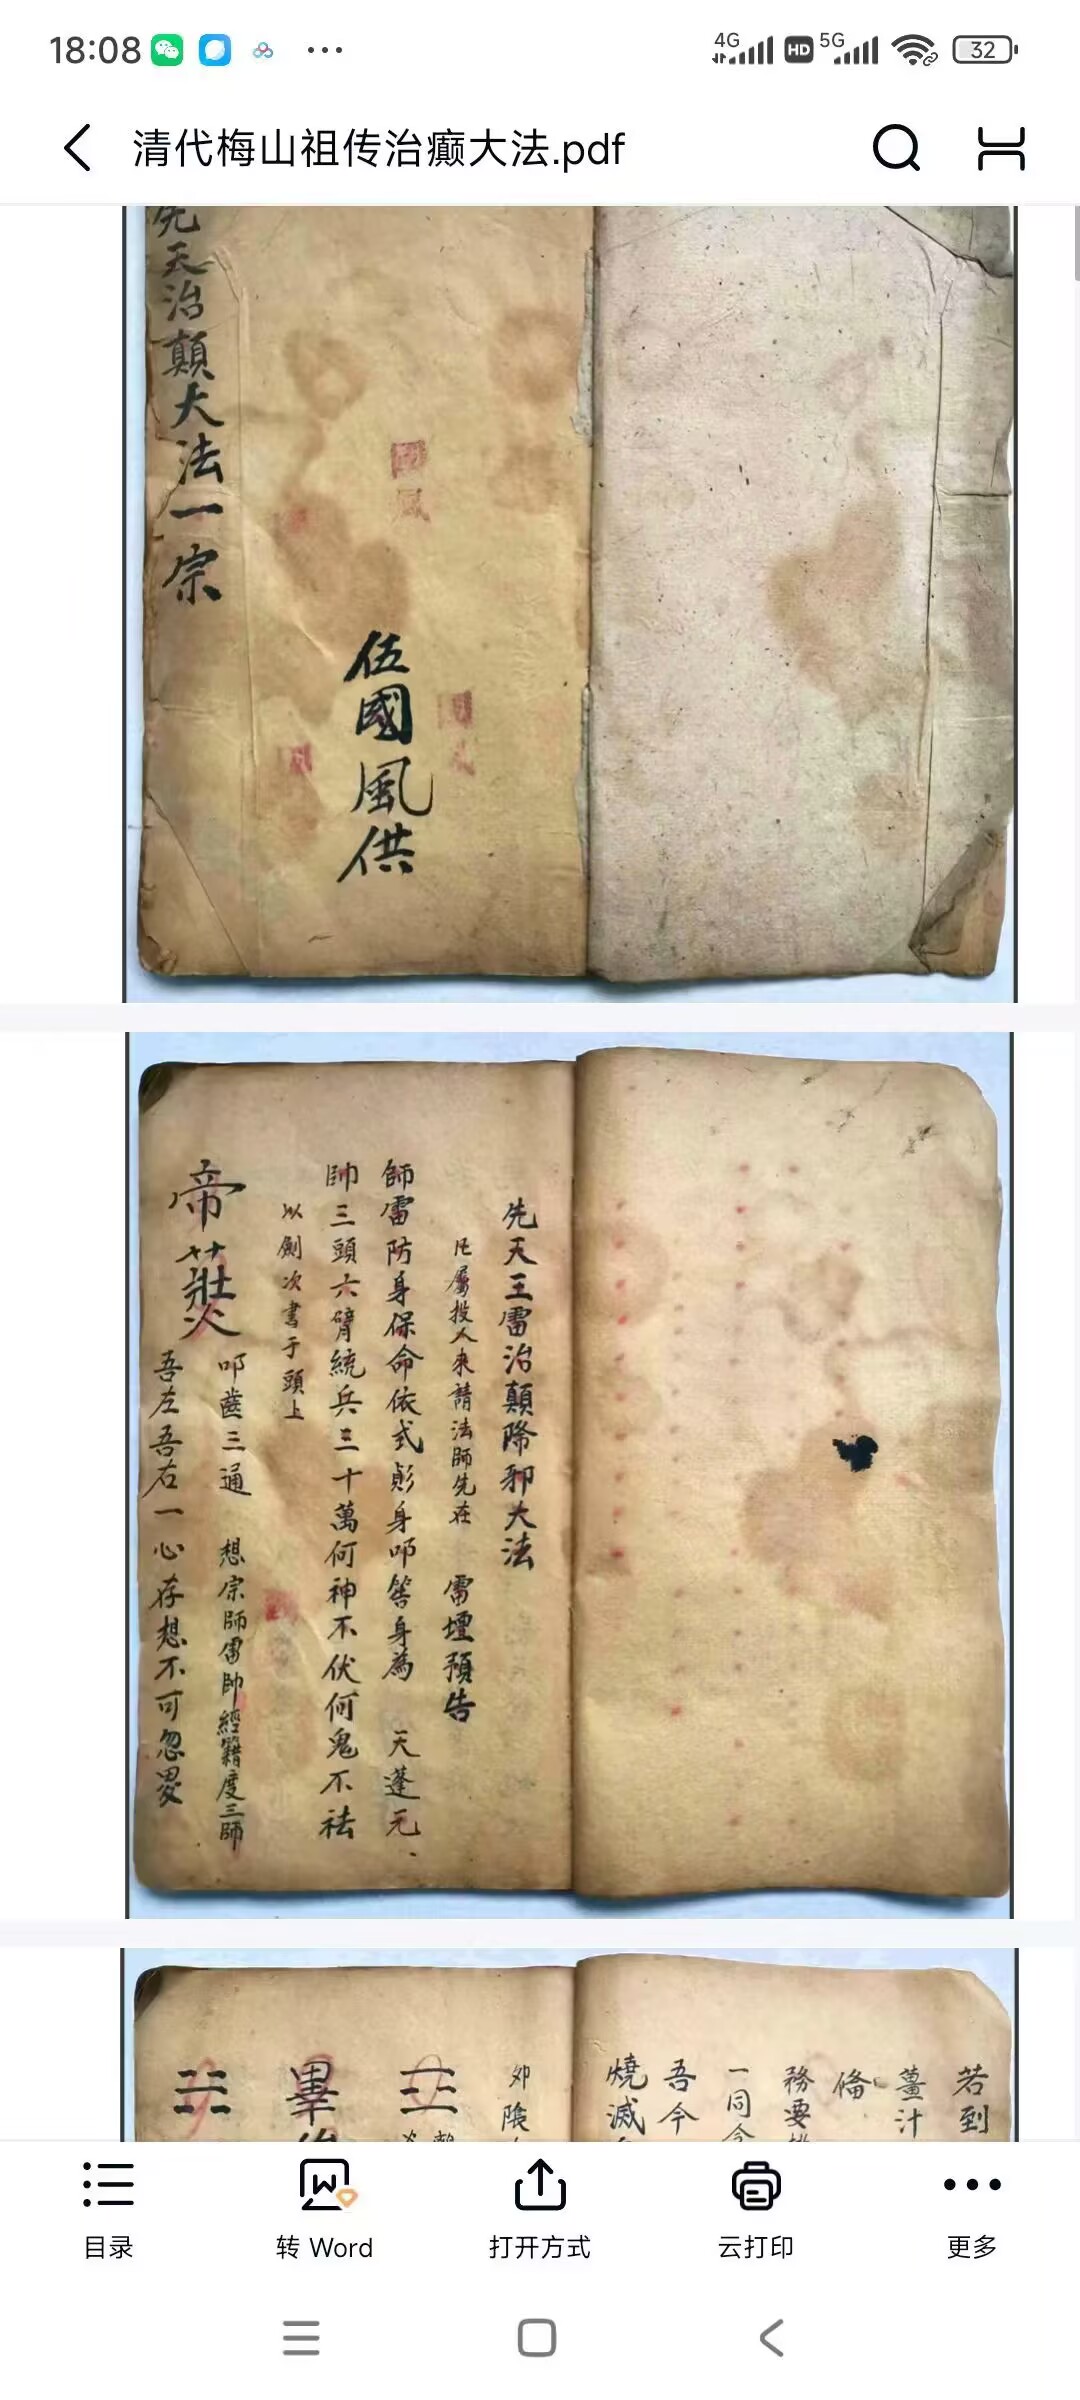 18:08
4G
HD
5G
32
清代梅山祖传治癫大法.pdf
先天治顛大法一宗
伍國風供
先天王雷治顛降邪大法
凡屬投人來請法師先在 雷壇預告
師雷防身保命依式 身叩答身為 天蓬元
帥三頭六臂統兵三十萬何神不伏何鬼不祛
以劍次書于頭上
帝
叩齒三通 想宗師雷帥經籍度三師
吾左吾右一心存想不可忽畧
若到
薑汁
俻
務要
一同令
吾今
燒滅
卯陰
目录
转 Word
打开方式
云打印
更多